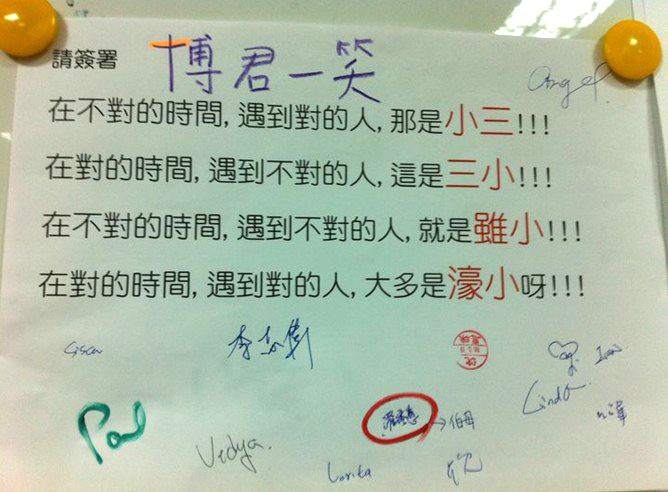 請簽署 博君一笑
Angel
在不對的時間, 遇到對的人, 那是小三!!!
在對的時間, 遇到不對的人, 這是三小!!!
在不對的時間, 遇到不對的人, 就是雖小!!!
在對的時間, 遇到對的人, 大多是濠小呀!!!
Linda
Paul
→伯母
Vidya.
Lorita